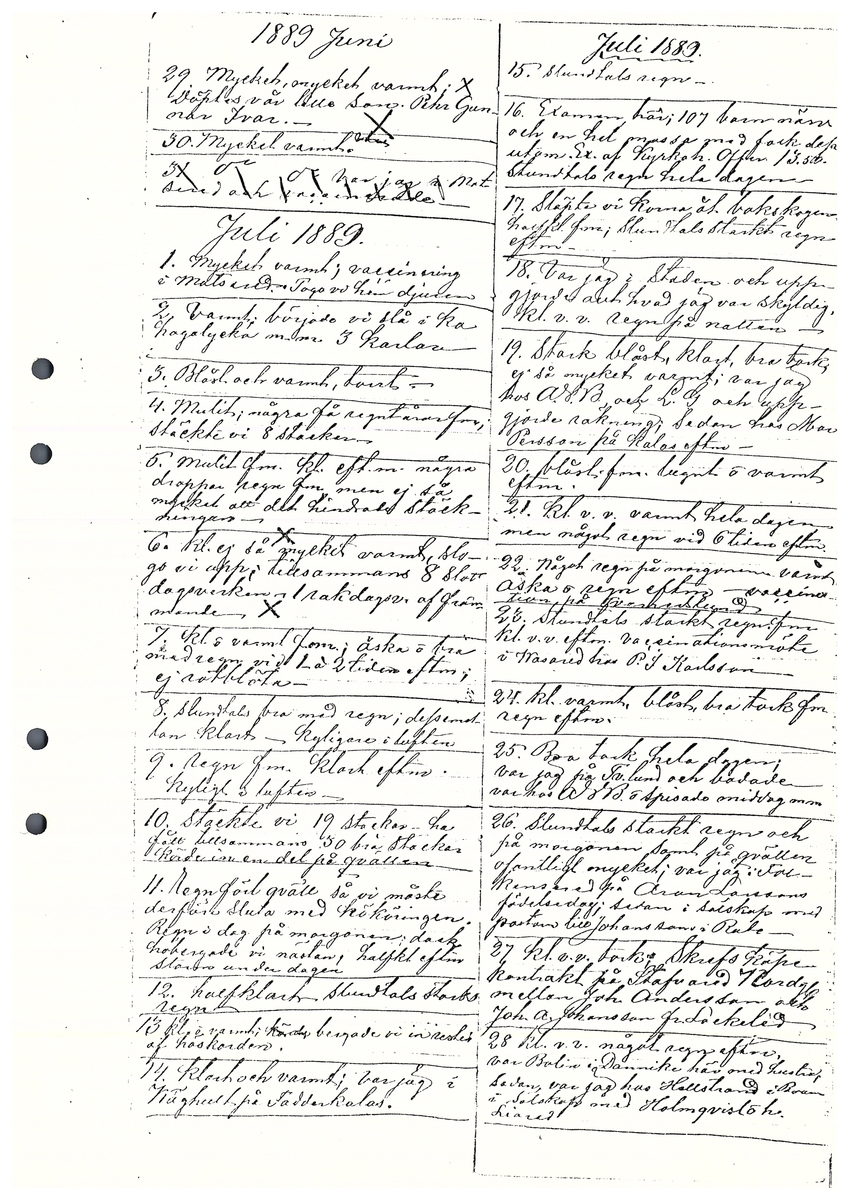 1889 Juni
29. Mycket, mycket varmt; X
Döptes vår lille Son. Pehr Gun-
nar Ivar. —
30. Mycket varmt.
31 do do Var jag i Mat
sered och
Juli 1889.
1. Mycket varmt; vaccinering
i Matsared. Togo vi hem djuren
2. Varmt; började vi slå i Ka
hagalycka m.m. 3 karlar
3. Blåst och varmt, torrt.
4. Mulit; några få regntårar fm;
stäckte vi 8 stackar
5. Mulit fm. kl. eft.m. några
droppar regn fm, men ej så
mycket att det hindrade stäck-
ningen —
6. kl. ej så mycket varmt, slo-
go vi upp; tillsammans 8 slåt
dagsverken o 1 rakdagsv. af främ
mande X
7. kl o varmt fm; åska o bra
med regn vid 1 à 2 tiden eftm;
ej rotblöta —
8. Stundtals bra med regn; dessemel
lan klart — kyligare i luften
9. regn fm. klart eftm.
kyligt i luften —
10. Stäckte vi 19 stackar ha
fått tillsammans 50 bra stackar
körde in en del på qvällen
11. Regn förl. qväll så vi måste
derför sluta med hököringen.
Regn i dag på morgonen; dock
höbergade vi nästan, halfkl eftm
större under dagen
12. halfklart, stundtals starkt
regn
13 kl. o varmt; bergade vi in resten
af höskörden.
14. Klart och varmt; var jag i
Häghult på Fadderkalas.
Juli 1889.
15. Stundtals regn —
16. Examen här; 107 barn närv
och en hel massa med folk dess
utom. Ex. af Kyrkoh. Offer 13.50.
Stundtals regn hela dagen
17. Släpte vi korna åt bokskogen
halfkl fm; Stundtals starkt regn
eftm.
18. Var jag i Staden och upp-
gjorde allt hvad jag var skyldig,
kl. v.v. regn på natten —
19. Stark blåst, klart, bra tork,
ej så mycket varmt; var jag
hos A&B. och L. G och upp-
gjorde räkning; sedan hos Mor
Persson på kalas eftm —
20. blåst. fm. lugnt o varmt
eftm.
21. kl. v. v. varmt hela dagen
men något regn vid 6 tiden eftm.
22. Något regn på morgonen varmt
åska o regn eftm — vaccina-
tion på
23. Stundtals starkt regn fm
kl. v.v. eftm. vaccinationsmöte
i Wasared hos P. J Karlsson
24. kl. varmt, blåst, bra tork fm
regn eftm.
25. Bra tork hela dagen;
var jag på Tv.lund och badade
var hos A&B. o spisade middag m m
26. Stundtals starkt regn och
på morgonen samt på qvällen
ofantligt mycket; var jag i
på Aron Larssons
födelsedag; sedan i sälskap med
pastorn till Johansson i
27 kl. v.v. tork; Skrefs köpe-
kontrakt på Stafvared Nordg.
mellan Joh. Andersson och
Joh. A. Johansson fr.
28 kl. v.v. något regn eftm,
var Bolin i Dannike här med hustru;
sedan var jag hos Hellstrand i
i sälskap med Holmqvist o h.